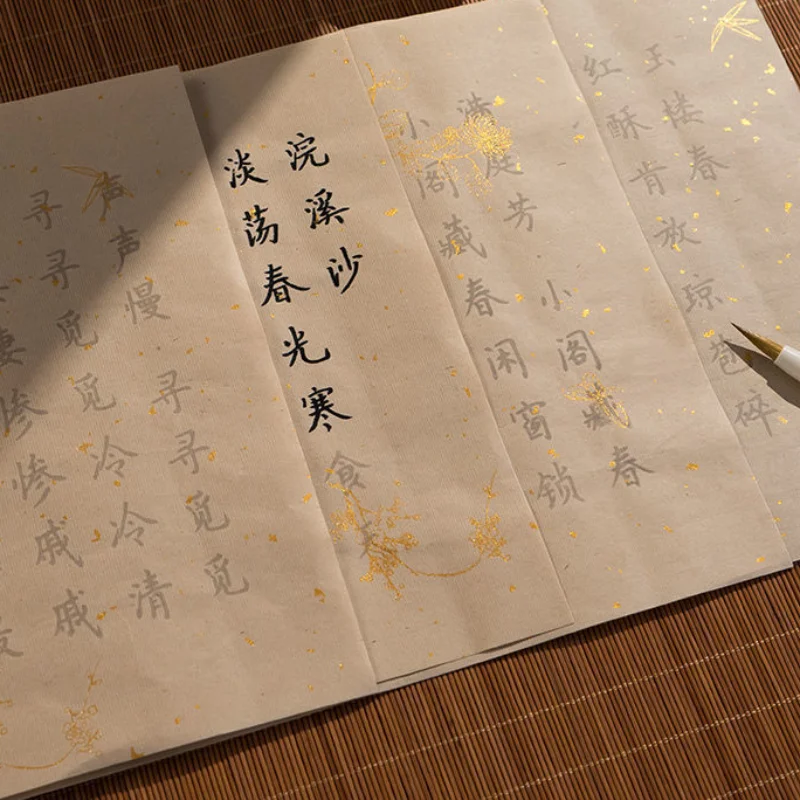 玉楼春
红酥肯放琼苞碎
满庭芳 小阁藏春
小阁藏春闲窗锁
浣溪沙
淡荡春光寒食天
声声慢 寻寻觅觅
寻寻觅觅冷冷清
凄惨惨戚戚